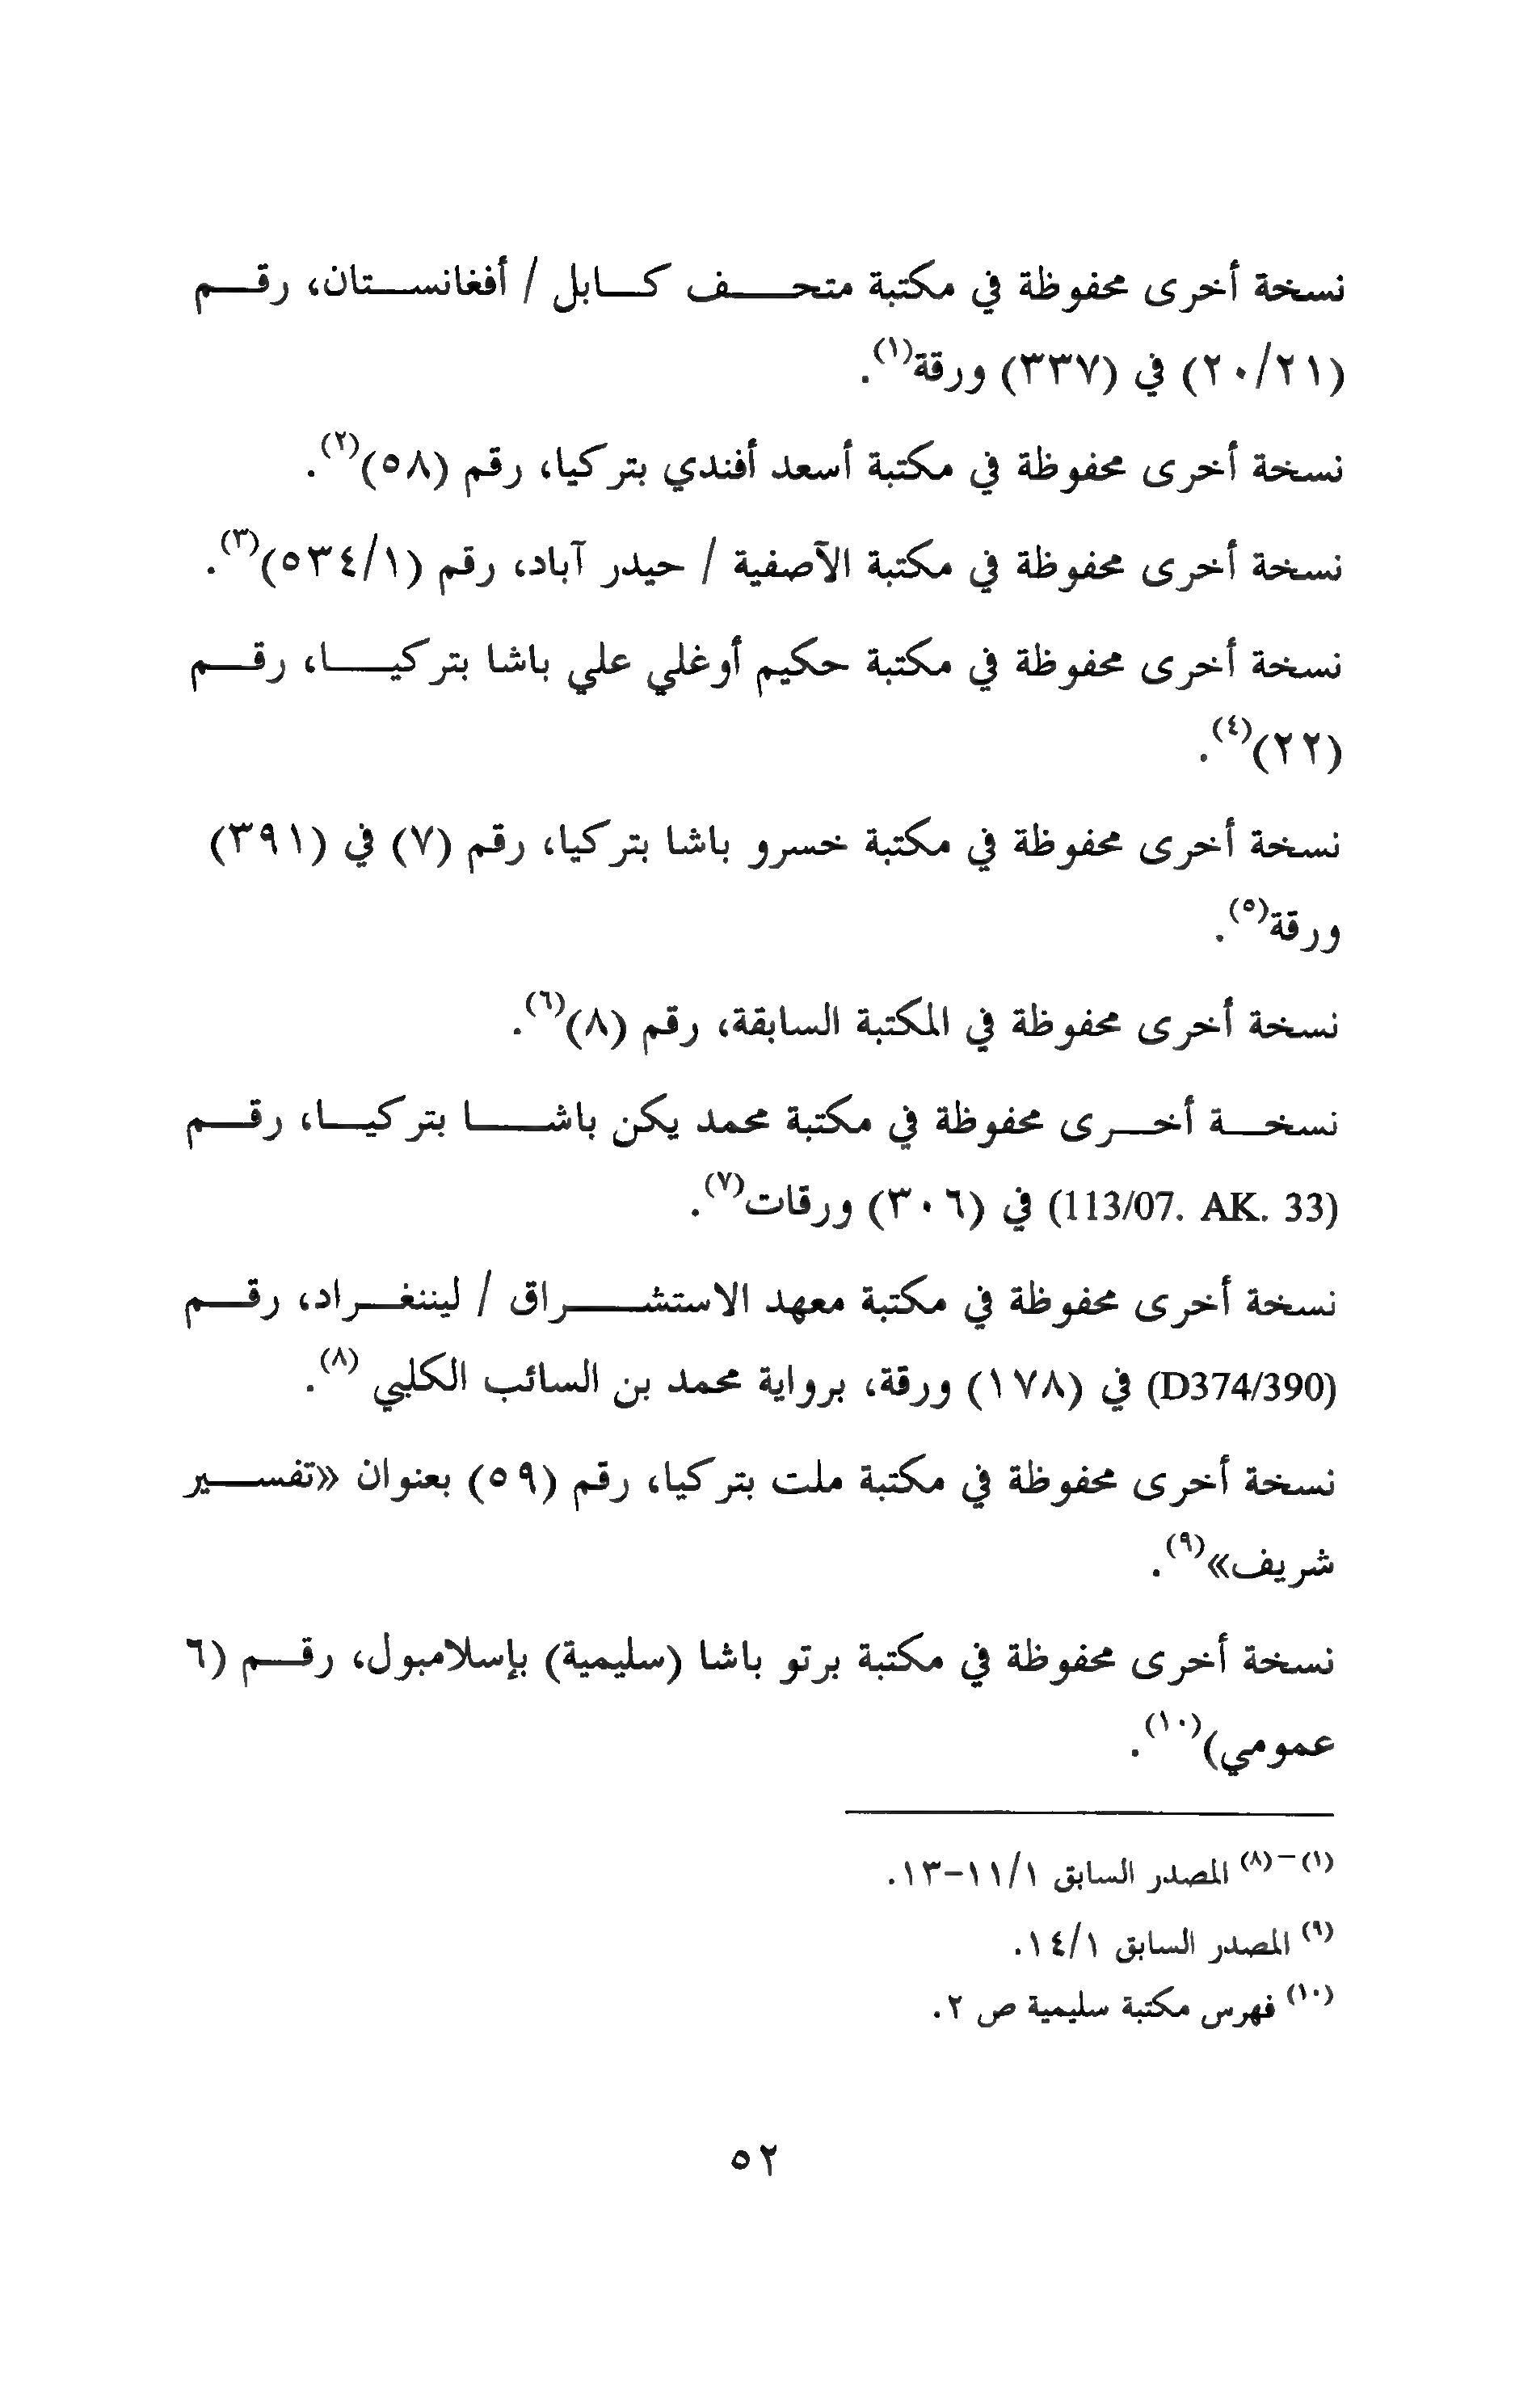 نسخة أخرى محفوظة في مكتبة متحف كابل / أفغانستان، رقم
(٢٠/٢١) في (٣٣٧) ورقة(١).
نسخة أخرى محفوظة في مكتبة أسعد أفندي بتركيا، رقم (٥٨)(٢).
نسخة أخرى محفوظة في مكتبة الآصفية / حيدر آباد، رقم (٥٣٤/١)(٣).
نسخة أخرى محفوظة في مكتبة حكيم أوغلي علي باشا بتركيا، رقم
(٢٢)(٤).
نسخة أخرى محفوظة في مكتبة خسرو باشا بتركيا، رقم (٧) في (٣٩١)
ورقة(٥).
نسخة أخرى محفوظة في المكتبة السابقة، رقم (٨)(٦).
نسخة أخرى محفوظة في مكتبة محمد يكن باشا بتركيا، رقم
(113/07. AK. 33) في (٣٠٦) ورقات(٧).
نسخة أخرى محفوظة في مكتبة معهد الاستشراق / ليننغراد، رقم
(D374/390) في (١٧٨) ورقة، برواية محمد بن السائب الكلبي (٨).
نسخة أخرى محفوظة في مكتبة ملت بتركيا، رقم (٥٩) بعنوان «تفسير
شريف»(٩).
نسخة أخرى محفوظة في مكتبة برتو باشا (سليمية) بإسلامبول، رقم (٦
عمومي)(١٠).
(١)-(٨) المصدر السابق ١١/١-١٣.
(٩) المصدر السابق ١٤/١.
(١٠) فهرس مكتبة سليمية ص ٢.
٥٢